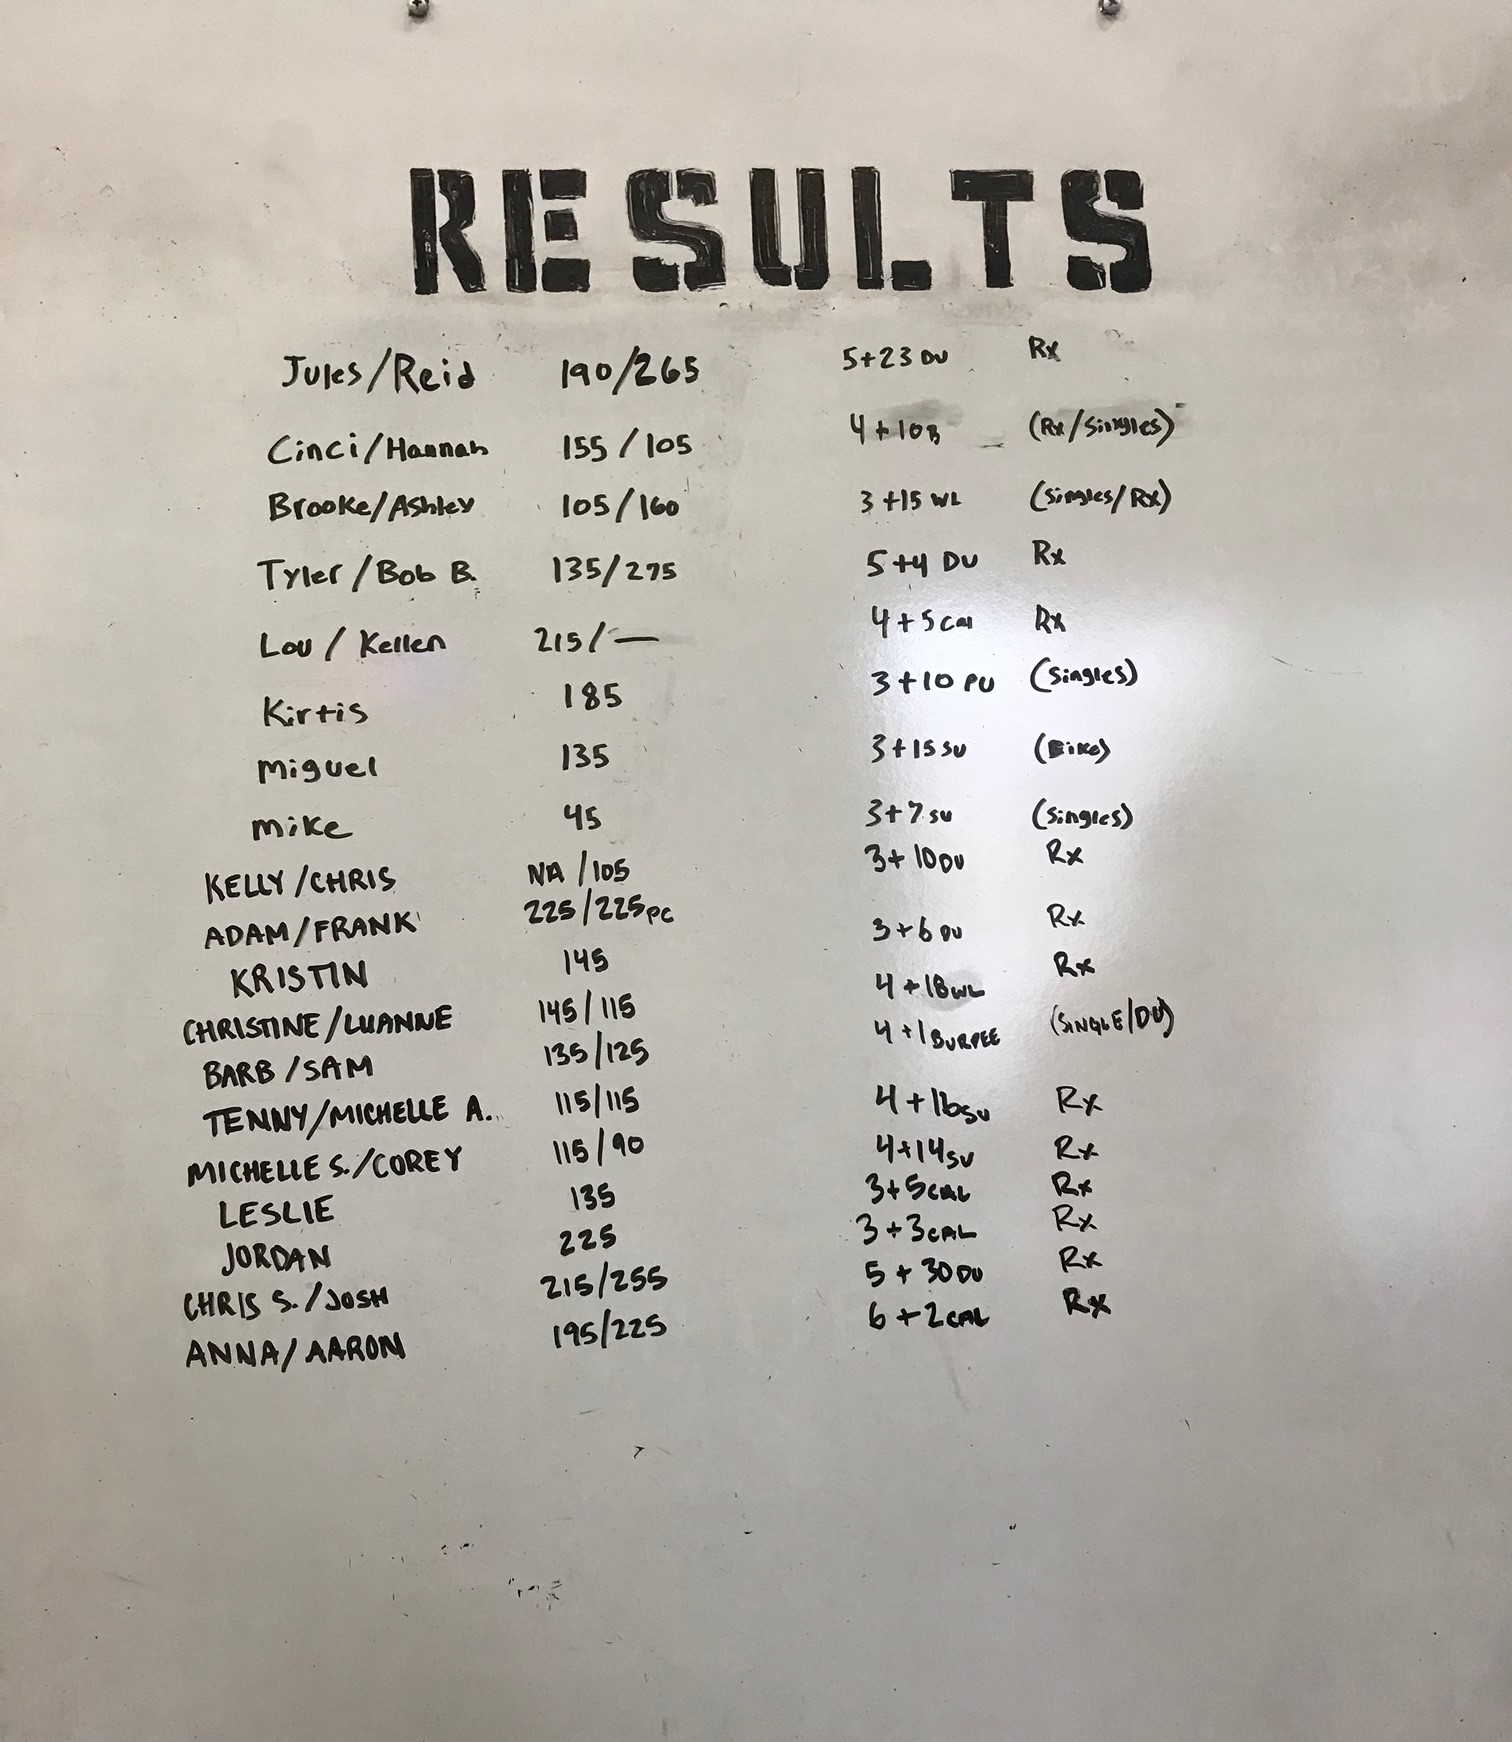 RESULTS
Jules/Reid 190/265 5+23 DU Rx
Cinci/Hannah 155/105 4+10B (Rx/Singles)
Brooke/Ashley 105/160 3+15 WL (Singles/Rx)
Tyler/Bob B. 135/275 5+4 DU Rx
Lou / Kellen 215/— 4+5cal Rx
Kirtis 185 3+10 PU (Singles)
Miguel 135 3+15 SU (Bike)
mike 45 3+7 SU (Singles)
KELLY/CHRIS NA/105 3+10DU Rx
ADAM/FRANK 225/225PC 3+6 DU Rx
KRISTIN 145 4+18WL Rx
CHRISTINE/LUANNE 145/115 4+1BURPEE (SINGLE/DU)
BARB/SAM 135/125
TENNY/MICHELLE A. 115/115 4+16SU Rx
MICHELLE S./COREY 115/90 4+14SU Rx
LESLIE 135 3+5CAL Rx
JORDAN 225 3+3CAL Rx
CHRIS S./JOSH 215/255 5+30DU Rx
ANNA/AARON 195/225 6+2CAL Rx